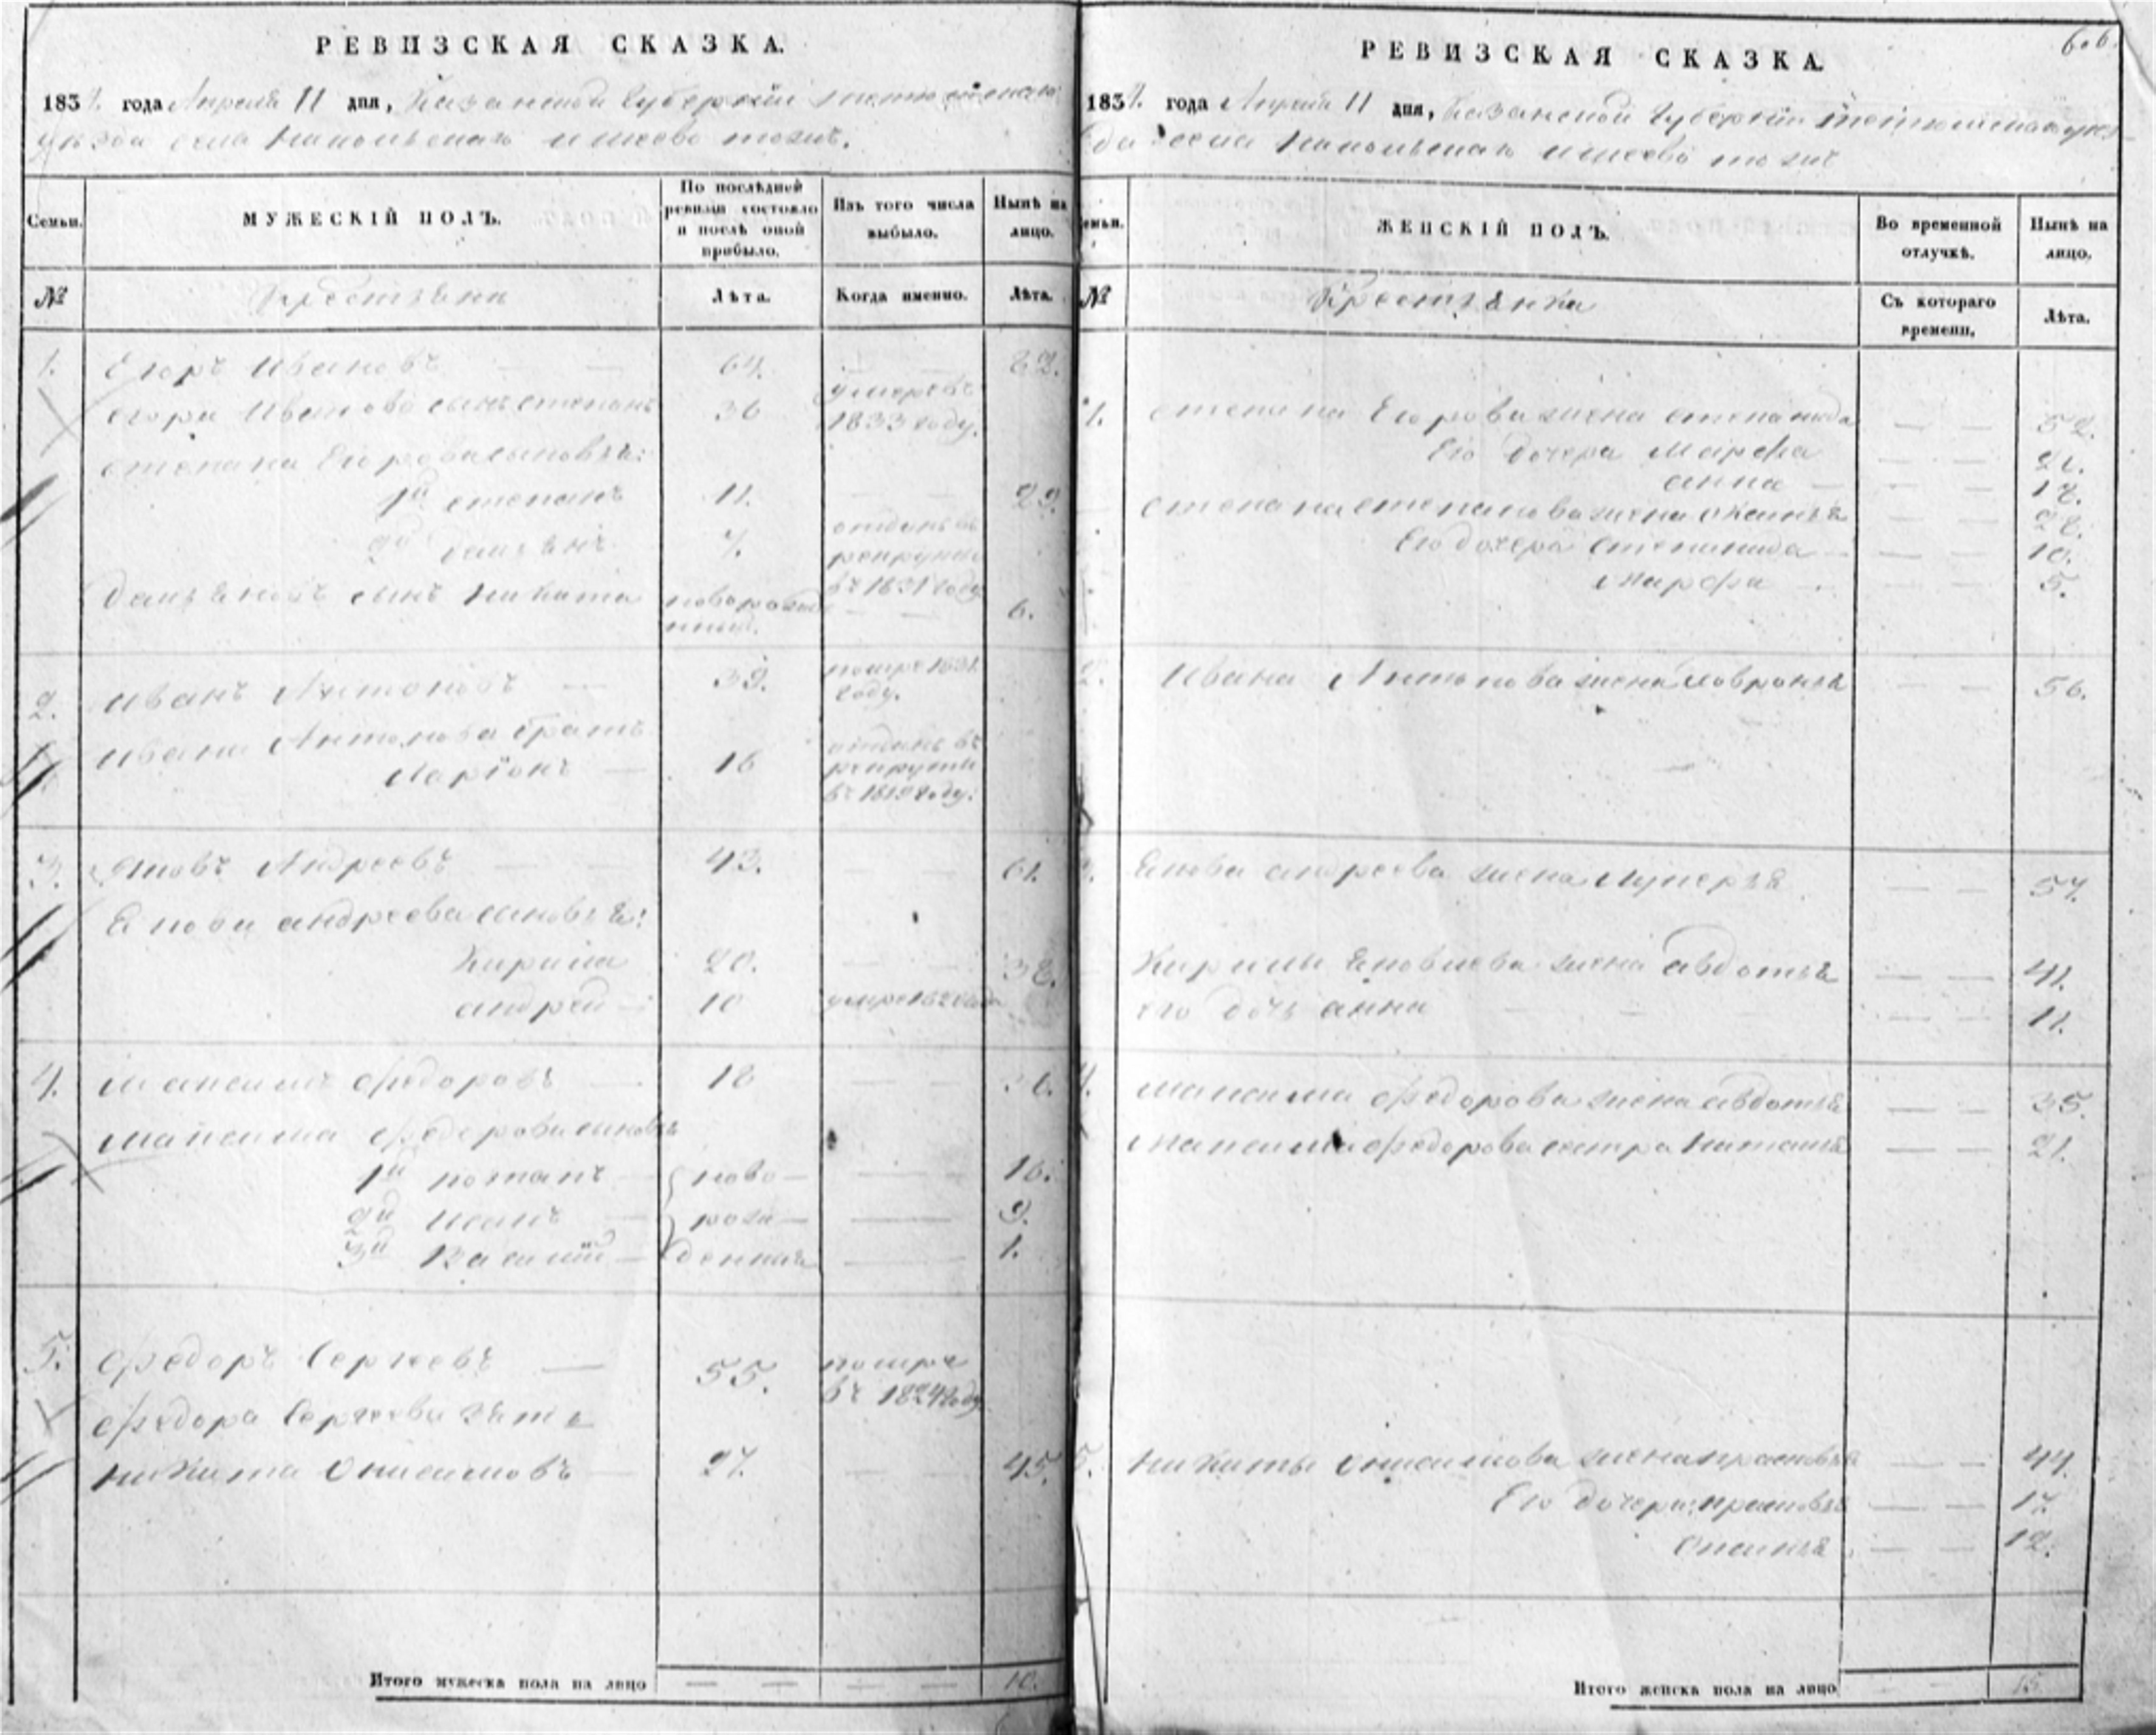 РЕВИЗСКАЯ СКАЗКА.
1834. года Апреля 11 дня, Казанской Губернии Тетюшскаго
уезда села Никольскаго
Семьи.
МУЖЕСКІЙ ПОЛЪ.
По послѣдней ревизіи состояло и послѣ оной прибыло.
Изъ того числа выбыло.
Нынѣ на лицо.
№
Крестьяне
Лѣта.
Когда именно.
Лѣта.
1. Егоръ Ивановъ 64. 82.
Егора Иванова сынъ Степанъ 36 умеръ въ 1833 году.
Степана Егорова сыновья:
1й Степанъ 11. 29.
2й Демьянъ 7. отданъ въ рекруты въ 1831 году
Демьяновъ сынъ Никита новорожденный. 6.
2. Иванъ Антоновъ 39. помре 1831 году.
Ивана Антонова братъ
Ларіонъ 16 отданъ въ рекруты въ 1819 году.
3. Яковъ Андреевъ 43. 61.
Якова Андреева сыновья:
Кирила 20. 38.
Андрей 10
4. Максимъ Федоровъ 18 36.
Максима Федорова сыновья
1й Потапъ ново- 16.
2й рож- 9.
3й Василій денныя 1.
5. Федоръ Сергеевъ 55. помре въ 1824 году
Федора Сергеева зять
Никита Онисимовъ 27. 45.
Итого мужеска пола на лицо 10.
6.6.
РЕВИЗСКАЯ СКАЗКА.
1834. года Апреля 11 дня, Казанской Губернии Тетюшскаго уез-
да села Никольскаго
Семьи.
ЖЕНСКІЙ ПОЛЪ.
Во временной отлучкѣ.
Нынѣ на лицо.
№
Крестьянки
Съ котораго времени.
Лѣта.
1. Степана Егорова жена Степанида 52.
Его дочери Марфа 21.
Анна 17.
Степана Степанова жена 28.
Его дочери Степанида 10.
Марфа 5.
2. Ивана Антонова жена Ховронья 56.
3. Якова Андреева жена Лукерья 57.
Кирилы Яковлева жена Авдотья 41.
его дочь Анна 11.
4. Максима Федорова жена Авдотья 35.
Максима Федорова сестра Наталья 21.
5. Никиты Онисимова жена Прасковья 44.
Его дочери: Прасковья 17.
Оксинья 12.
Итого женска пола на лицо 15.